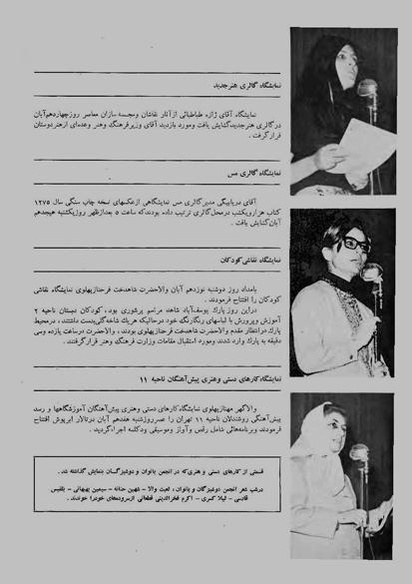 نمایشگاه گالری هنرجدید
نمایشگاه آقای ژازه طباطبائی از آثار نقاشان ومجسمه سازان معاصر روزچهاردهم‌آبان
درگالری هنرجدیدگشایش یافت ومورد بازدید آقای وزیرفرهنگ وهنر وعده‌ای ازهنردوستان
قرارگرفت .
نمایشگاه گالری مس
مدیرگالری مس نمایشگاهی ازعکسهای نسخه چاپ سنگی سال ۱۲۷۵
کتاب هزارویکشب درمحل‌گالری ترتیب داده بودندکه ساعت ۵ بعدازظهر روزیکشنبه هیجدهم
آبان‌گشایش یافت .
نمایشگاه نقاشی‌کودکان
بامداد روز دوشنبه نوزدهم آبان والاحضرت شاهدخت فرحنازپهلوی نمایشگاه نقاشی
کودکان را افتتاح فرمودند .
دراین روز پارك یوسف‌آباد شاهد مراسم پرشوری بود ، کودکان دبستان ناحیه ۲
آموزش وپرورش با لباسهای رنگارنگ خود درحالیکه هریك شاخه‌گلی‌بدست داشتند ، درمحیط
پارك درانتظار مقدم والاحضرت شاهدخت فرحنازپهلوی بودند ، والاحضرت درساعت یازده وسی
دقیقه به پارك وارد شدند ومورد استقبال مقامات وزارت فرهنگ وهنر قرارگرفتند .
نمایشگاه‌کارهای دستی وهنری پیش‌آهنگان ناحیه ۱۱
والاگهر مهنازپهلوی نمایشگاه‌کارهای دستی وهنری پیش‌آهنگان آموزشگاهها و رسد
پیش‌آهنگی روشندلان ناحیه ۱۱ تهران را عصرروزشنبه هفدهم آبان درتالار ایرپوش افتتاح
فرمودند وبرنامه‌هائی شامل رقص وآواز وموسیقی ودکلمه اجراگردید .
قسمتی از کارهای دستی و هنری‌که در انجمن بانوان و دوشیزگان بنمایش گذاشته شد .
درشب شعر انجمن دوشیزگان و بانوان ، لعبت والا – شهین حنانه – سیمین بهبهانی – بلقیس
– لیلا کسری – اکرم فخرالدینی قطعاتی ازسروده‌های خودرا خواندند .